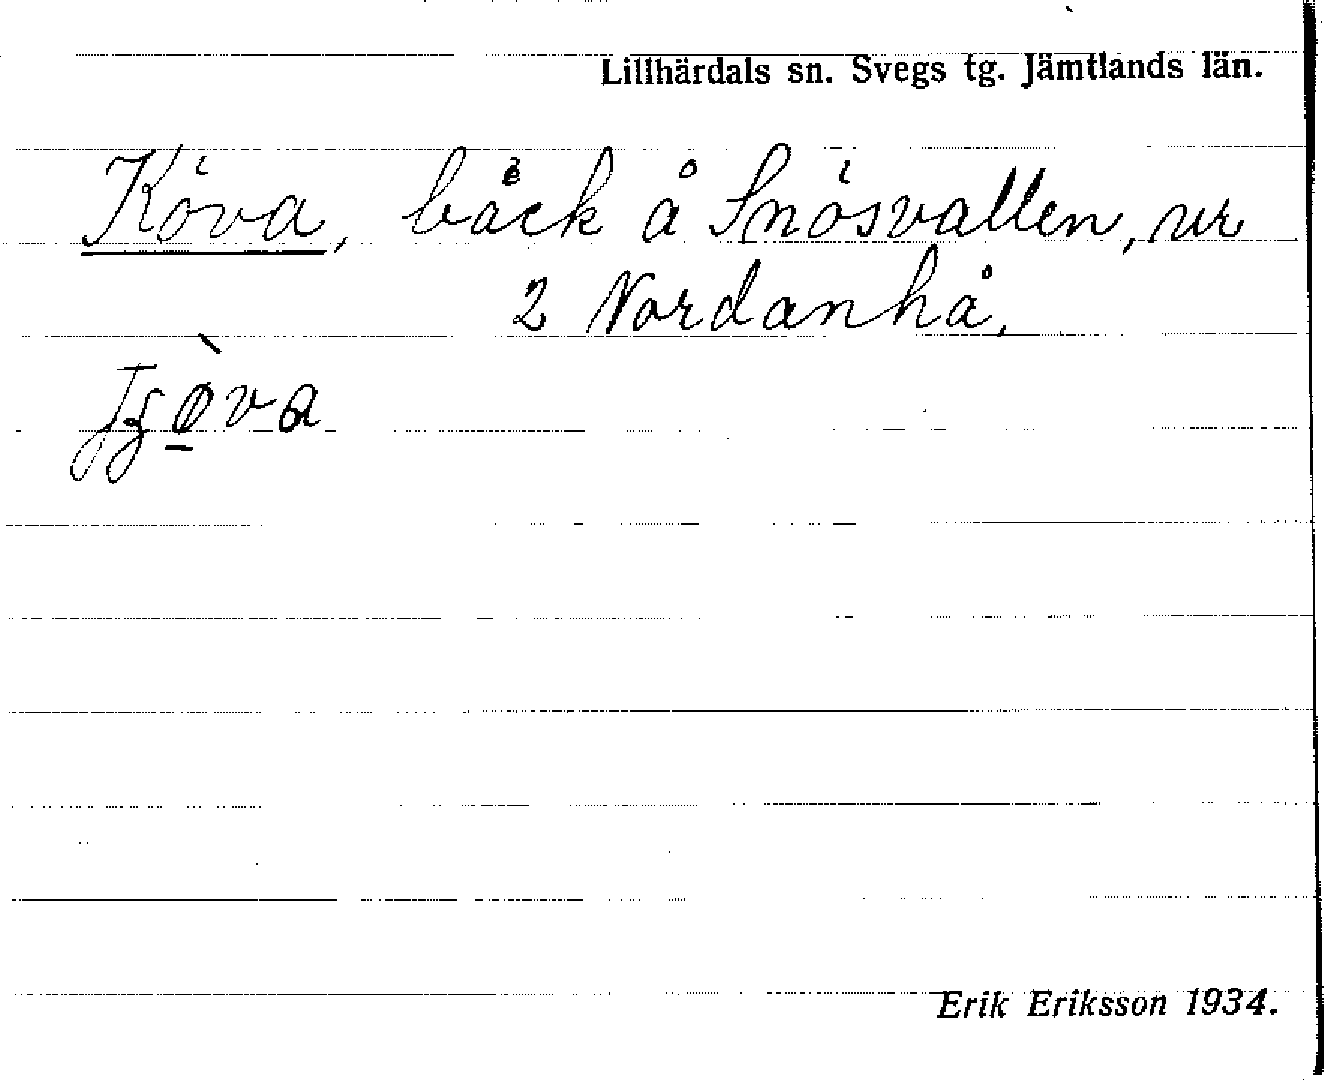 Lillhärdals sn. Svegs tg. Jämtlands län.
Köva, bäck å Snösvallen, ur
2 Nordanhå.
Erik Eriksson 1934.